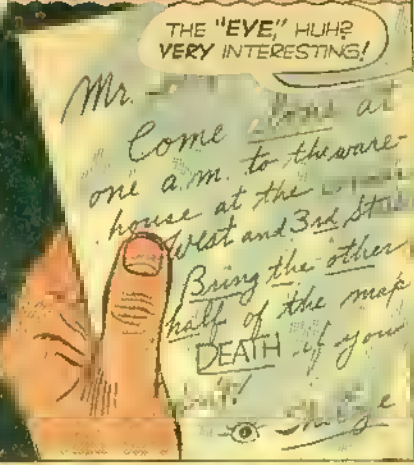 THE "EYE," HUH?
VERY INTERESTING!
Mr.
Come alone at
one a.m. to the ware-
house at the
West and 3rd Sts.
Bring the other
half of the map
DEATH if you
don't!
The Eye